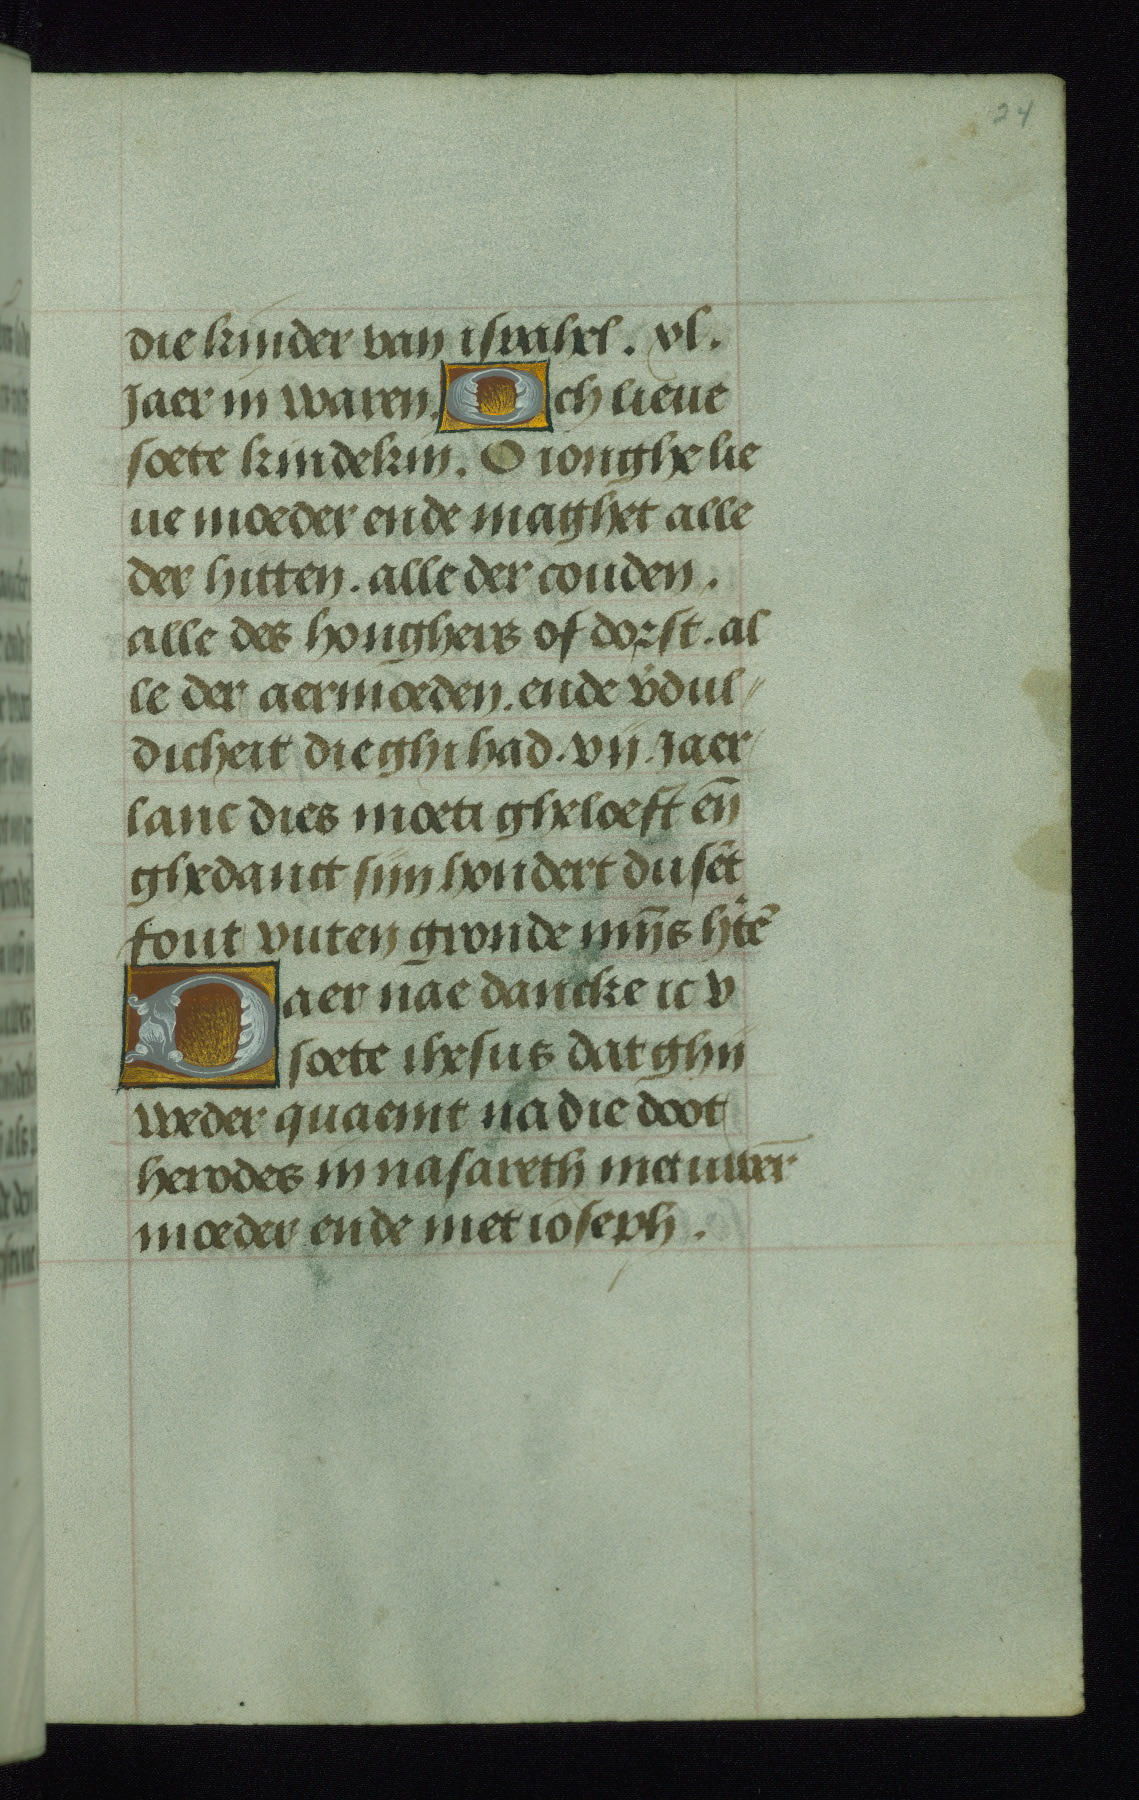 24
die kinder van israhel . xl .
Jaer in waren . Och lieue
soete kindekin . O ionghe lie
ue moeder ende maghet alle
der hitten . alle der couden .
alle des honghers of dorst . al
le der aermoeden . ende v̄dul〃
dicheit die ghi had . vij . Jaer
lanc dies moeti gheloeft en̄
ghedanct sijn hondert duse͛t
fout vuten gronde mijn̄s h͛te͂
Daer nae dancke ic v
soete ihesus dat ghij
weder quaemt na die doot
herodes in nasareth met uwer
moeder ende met ioseph .